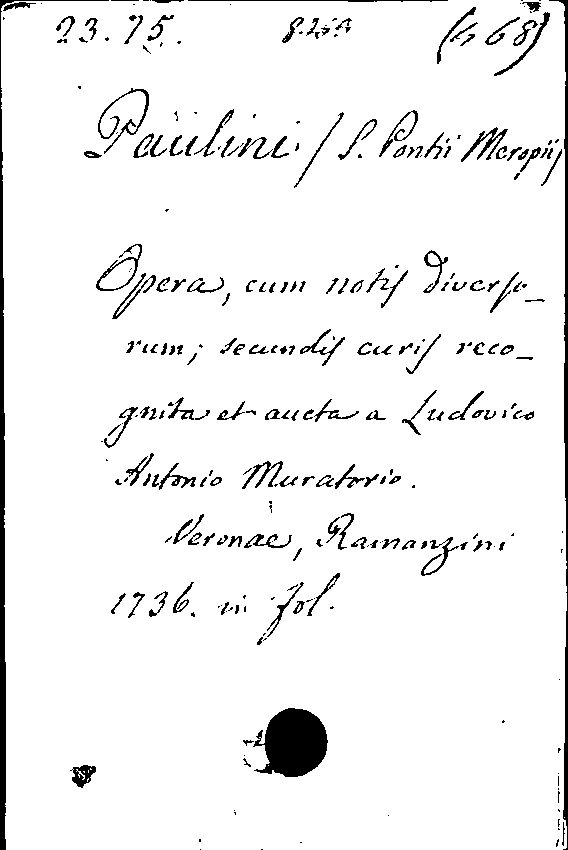 23. 75. (468)
Paulini / S. Pontii Meropii /
Opera, cum notis diverso-
rum; secundis curis reco-
gnita et aucta a Ludovico
Antonio Muratorio.
Veronae, Ramanzini
1736. in fol.